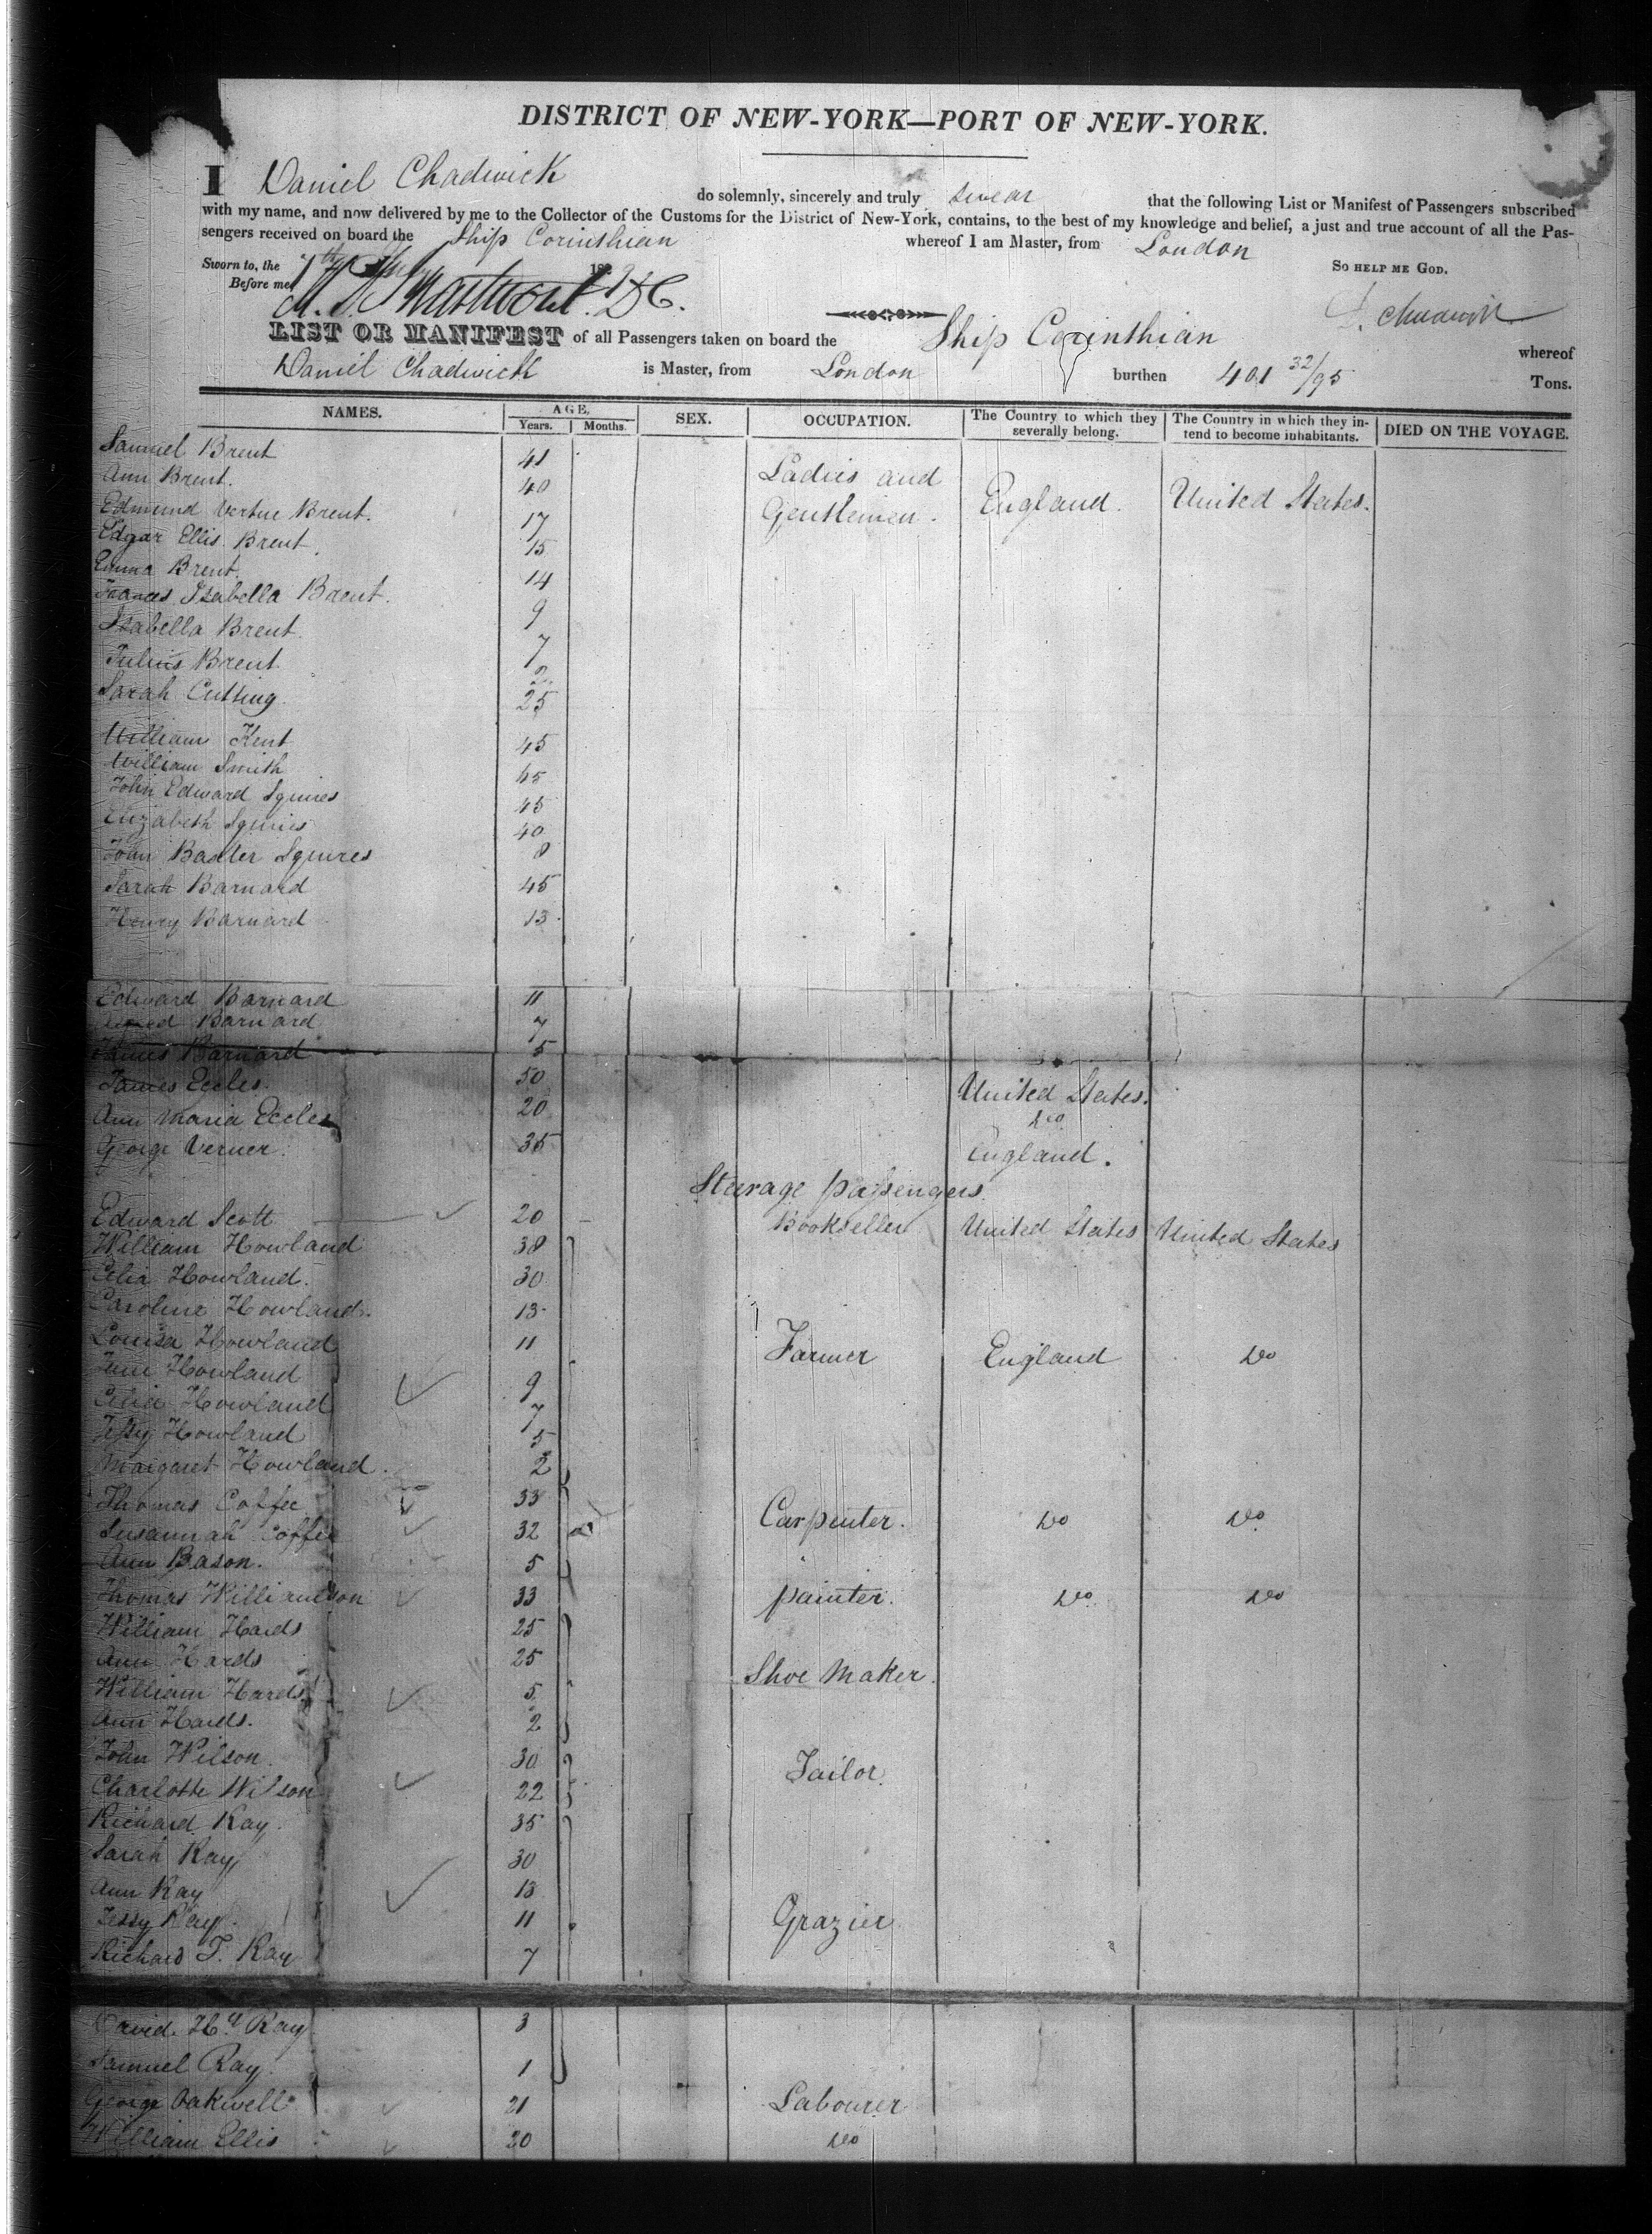 DISTRICT OF NEW-YORK—PORT OF NEW-YORK.
I Daniel Chadwick do solemnly, sincerely and truly swear that the following List or Manifest of Passengers subscribed
with my name, and now delivered by me to the Collector of the Customs for the District of New-York, contains, to the best of my knowledge and belief, a just and true account of all the Pas-
sengers received on board the Ship Corinthian whereof I am Master, from London
Sworn to, the 7th 182 So HELP ME GOD.
Before me D. Chadwick
LIST OR MANIFEST of all Passengers taken on board the Ship Corinthian whereof
Daniel Chadwick is Master, from London burthen 401 32/95 Tons.
NAMES. AGE, Years. Months. SEX. OCCUPATION. The Country to which they severally belong. The Country in which they in-tend to become inhabitants. DIED ON THE VOYAGE.
Samuel Brent 41
Ann Brent. 40 Ladies and
Edmund Vertue Brent. 17 Gentlemen. England. United States.
Edgar Ellis Brent 15
Emma Brent. 14
Frances Isabella Brent. 9
Isabella Brent. 7
Julius Brent. 2
Sarah Cutting 25
William Kent 45
William Smith 45
John Edward Squires 45
Elizabeth Squires 40
John Squires 8
Sarah Barnard 45
Henry Barnard 13
Edward Barnard 11
Barnard 7
James Barnard 5
James Eccles. 50 United States.
Ann Maria Eccles 20 Do
George Verner. 35 England.
Sterage passengers.
Edward Scott 20 Bookseller United States United States
William Howland 38
Celia Howland. 30
Caroline Howland. 13
Louisa Howland 11 Farmer England Do
Howland 9
Celia Howland 7
Jessy Howland 5
Margaret Howland. 2
Thomas Coffee 33 Carpenter. Do Do
Susannah Coffee 32
Ann Bason. 5
Thomas Williamson 33 painter. Do Do
William Hards 25
Ann Hards 25 Shoe Maker.
William Hards 5
Ann Hards. 2
John Wilson. 30 Tailor.
Charlotte Wilson 22
Richard Ray. 35
Sarah Ray 30
Ann Ray 13
Jessy Ray. 11 Grazier
Richard T. Ray 7
David. Hy Ray 3
Samuel Ray. 1
George Oakwell 21 Labourer
William Ellis 20 Do